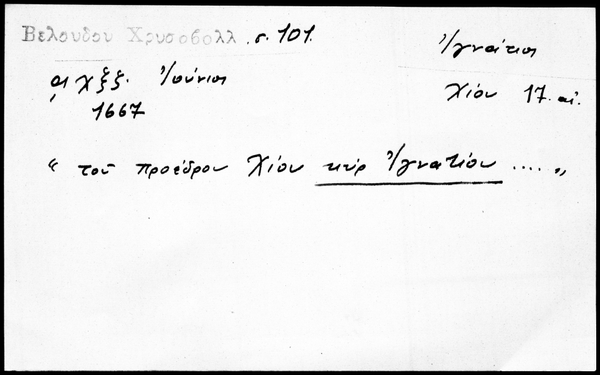 Βελουδου Χρυσοβολλ. σ. 101.
Ἰγνάτιος
͵αχξζ. Ἰούνιος
Χίου 17. αἰ.
1667
“ τοῦ προέδρου Χίου κὺρ Ἰγνατίου .... „